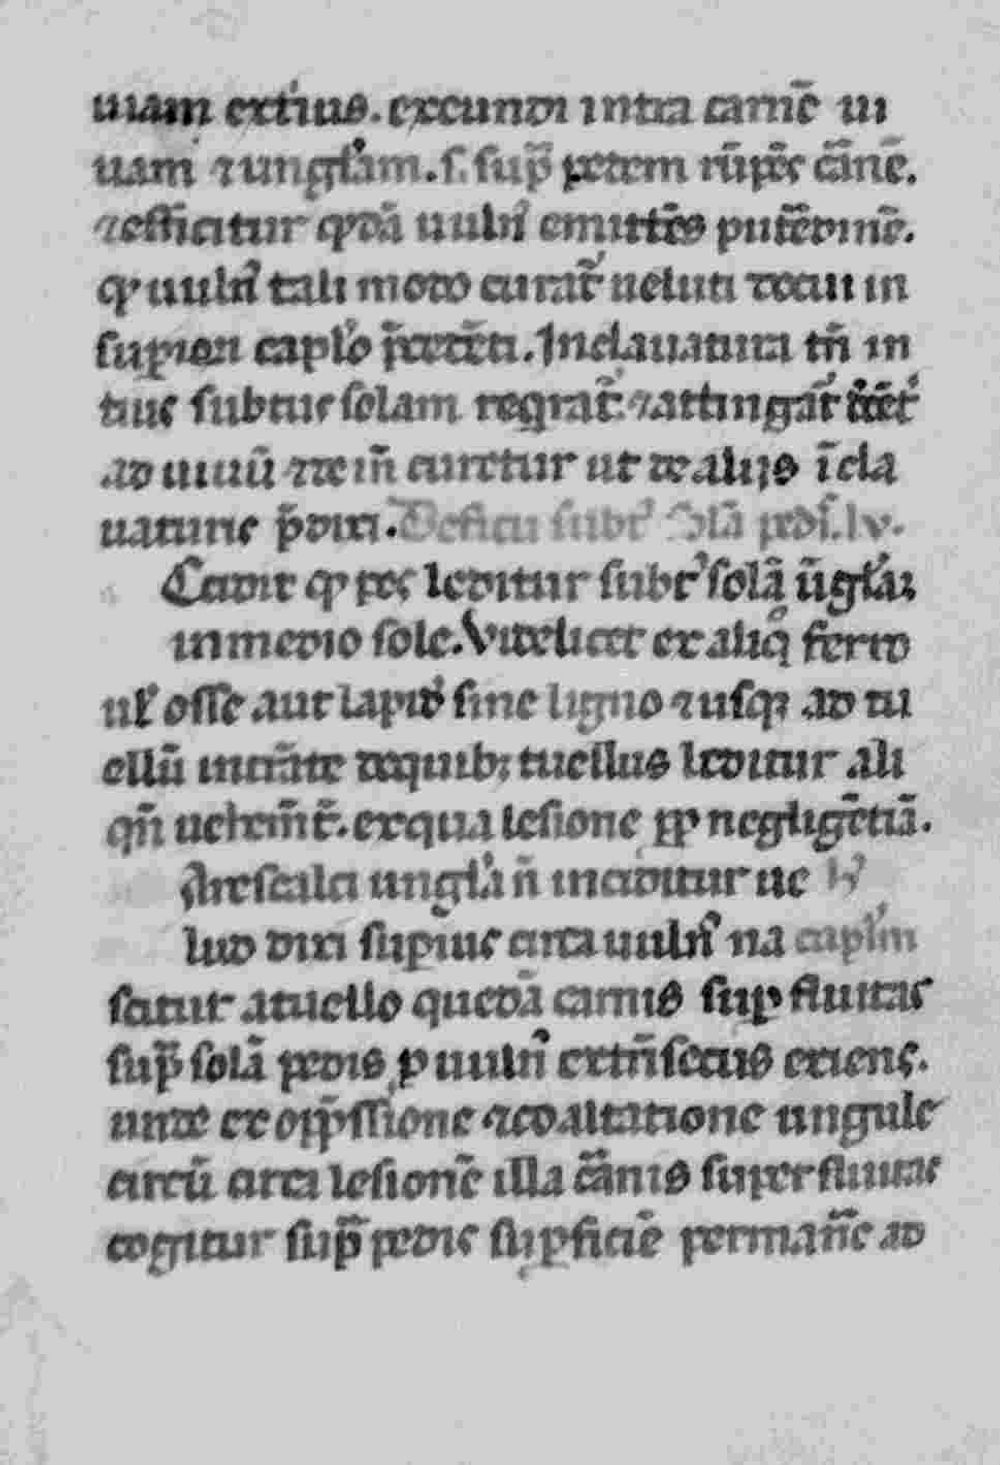 uiam exti᷒us. excundi intra carnē ui
uam ⁊ unglam. s. sup̄ pedem rūpēs cānē.
⁊ efficitur qdā uuln᷒ emittēs putēdinē.
qͥ uuln᷒ tali modo curat᷒ uelut docui in
superiori caplo p̄cedēti. Inclauatura tn̄ in
tius subtus solam
ad uiuū ⁊ tem̄ curetur ut de alijs īcla
uaturis p̄dixi. De ficu subt᷒ solā pedis. lv.
Cedit qͥ pes leditur subt᷒ solā ūgla;
in medio sole. Videlicet ex aliq̊ ferro
ul᷒ osse aut lapid᷒ sine ligno ⁊ usqꝫ ad tu
ellū intrāte de quibꝫ tuellus leditur ali
qn̄ uehem̄t᷒. ex qua lesione ꝓp negligētiā.
ungla n̄ inciditur uc
lud dixi superius circa uuln᷒ na
scitur a tuello quedā carnis suꝑfluitas
sup̄ solā pedis ꝑ uuln᷒ extn̄secus exiens.
unde ex opp̄ssione ⁊ coaltatione ungule
circū circa lesionē illa cānis superfluitas
cogitur sup̄ pedis suꝑficiē permanē᷒ ad